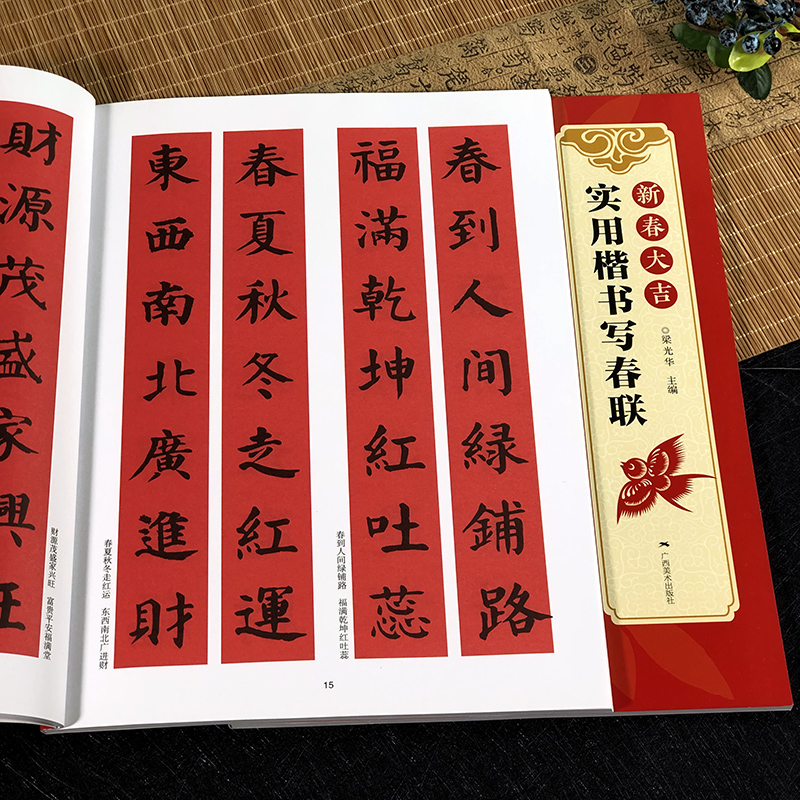 財源茂盛家興旺
财源茂盛家兴旺 富贵平安福满堂
春到人间綠鋪路
福滿乾坤紅吐蕊
春到人间绿铺路 福满乾坤红吐蕊
春夏秋冬走紅運
東西南北廣進財
春夏秋冬走红运 东西南北广进财
15
新春大吉
实用楷书写春联
◎梁光华 主编
广西美术出版社